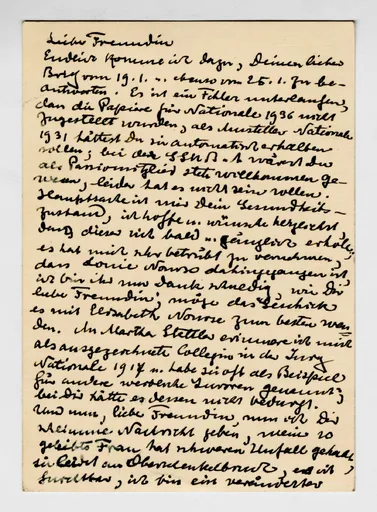 Liebe Freundin
Endlich komme ich dazu, Deinen lieben
Brief vom 19.1. u. ebenso vom 25.1. zu be-
antworten. Es ist ein Fehler unterlaufen,
dass die Papiere für Nationale 1936 nicht
zugestellt wurden, als Aussteller Nationale
1931 hättest Du sie automatisch erhalten
sollen, bei der GSMBK wärest Du
als Passivmitglied stets willkommen ge-
wesen, leider hat es nicht sein sollen.
Hauptsache ist mir Dein Gesundheits-
zustand, ich hoffe u. wünsche herzlichst
dass dieser sich bald u. gänzlich erhole,
es hat mich sehr betrübt zu vernehmen,
dass Louise Nourse dahingegangen ist,
ich bin ihr nur Dank schuldig, wie Dir
liebe Freundin, möge das Geschick
es mit Elisabeth Nourse zum besten wen
den. An Martha Stettler erinnere ich mich
als ausgezeichnete Collegin in der Jury
Nationale 1917 u. habe sie oft als Beispiel
für andere werdende Juroren genannt,
bei Dir hätte es dessen nicht bedurft.
Und nun, liebe Freundin, muss ich Dir
schlimme Nachricht geben, meine so
geliebte Frau hat schweren Unfall gehabt,
sie leidet an Oberschenkelbruch, es ist
furchtbar, ich bin ein veränderter